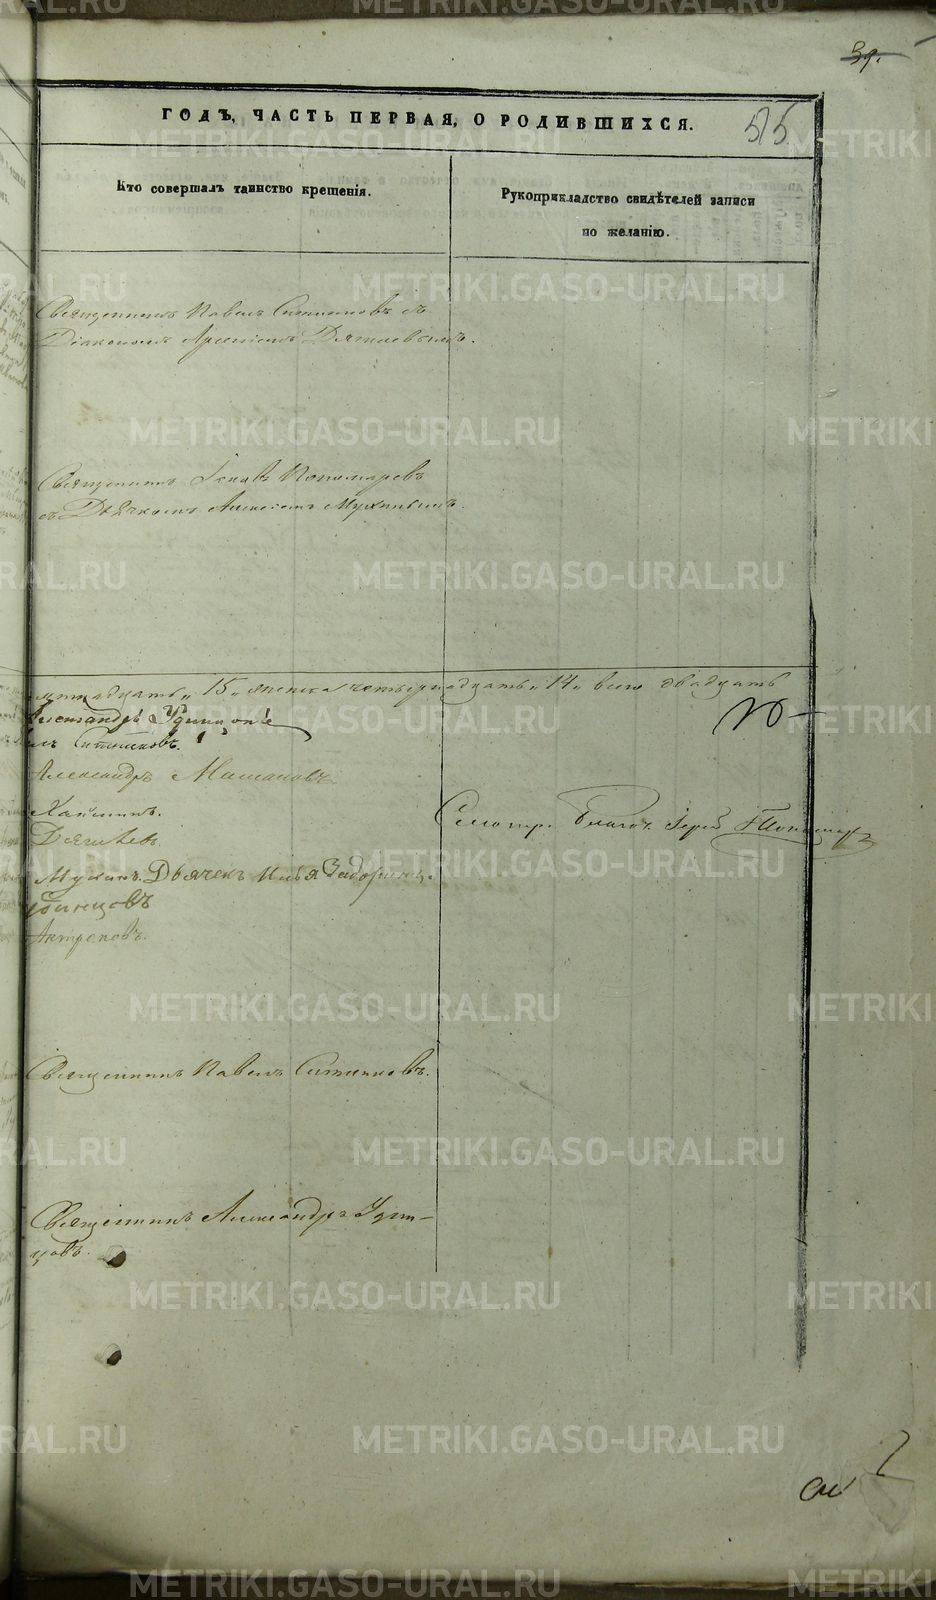 39.
ГОДЪ, ЧАСТЬ ПЕРВАЯ, О РОДИВШИХСЯ.
55
Кто совершалъ таинство крещенія.
Рукоприкладство свидѣтелей записи
по желанію.
Священникъ Павелъ Ситниковъ съ
Діакономъ Арсеніемъ Дягилевымъ.
Священникъ Іаковъ Пономаревъ
съ Дьячкомъ Алексіемъ Мухинымъ.
15 женска четырнадцать 14 всего двадцать
Александръ Удинцовъ
Ситниковъ.
Александръ Мамановъ
Дягилевъ.
Мухинъ. Дьячекъ Илья Задоринъ.
Удинцовъ
Священникъ Павелъ Ситниковъ.
Священникъ Александръ Удин-
цовъ.
METRIKI.GASO-URAL.RU